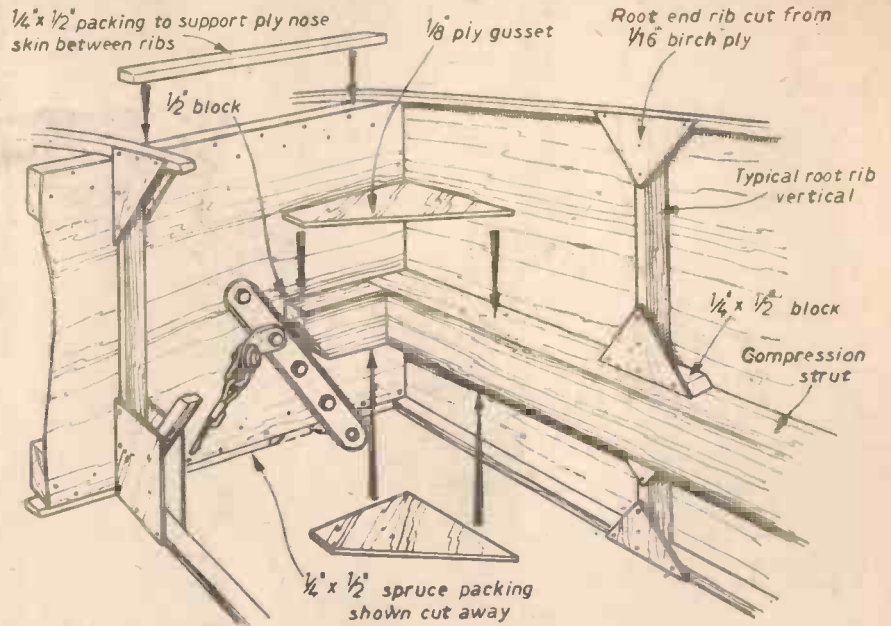 1/4" x 1/2" packing to support ply nose
skin between ribs
1/8" ply gusset
Root end rib cut from
1/16" birch ply
1/2" block
Typical root rib
vertical
1/4" x 1/2" block
Compression
strut
1/4" x 1/2" spruce packing
shown cut away